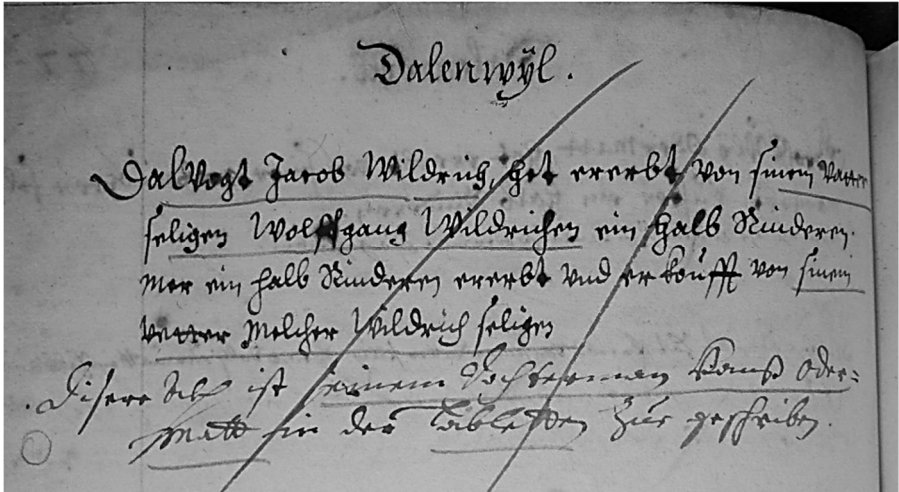 Dalenwÿl.
Dalvogt Jacob Wildrich, het ererbt von sinem Vatter
seligen Wolffgang Wildrichen ein halb Rinderen.
Mer ein halb Rinderen ererbt vnd erkoufft von sinem
Vetter Melcher Wildrich seligen
Disere Alp ist seinem Dochterman Hanß Oder=
matt in der Tabletten Zue geschriben.